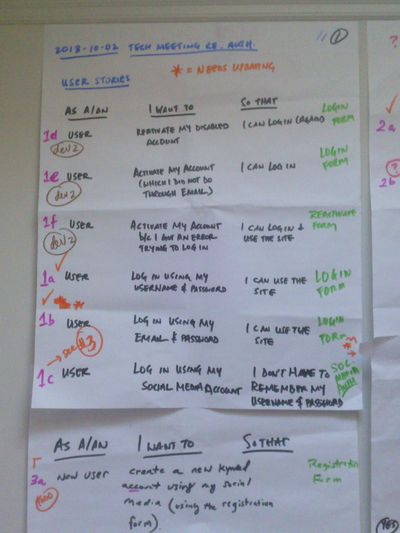 2013-10-02 TECH MEETING RE. AUTH. 1
USER STORIES
* = NEEDS UPDATING
AS A/AN I WANT TO SO THAT
1d USER REACTIVATE MY DISABLED ACCOUNT I CAN LOGIN (AGAIN) LOGIN FORM
dev2
1e USER ACTIVATE MY ACCOUNT (WHICH I DID NOT DO THROUGH EMAIL) I CAN LOG IN LOGIN FORM
dev2
1f USER ACTIVATE MY ACCOUNT B/C I GOT AN ERROR TRYING TO LOG IN I CAN LOGIN & USE THE SITE REACTIVATE FORM
dev2
1a USER LOG IN USING MY USERNAME & PASSWORD I CAN USE THE SITE LOGIN FORM
1b USER LOG IN USING MY EMAIL & PASSWORD I CAN USE THE SITE LOGIN FORM
1c USER LOG IN USING MY SOCIAL MEDIA ACCOUNT I DON'T HAVE TO REMEMBER MY USERNAME & PASSWORD SOC. MEDIA AUTH
AS A/AN I WANT TO SO THAT
3a NEW USER create a new account using my social media (using the registration form). Registration Form
?
2a
?
2b